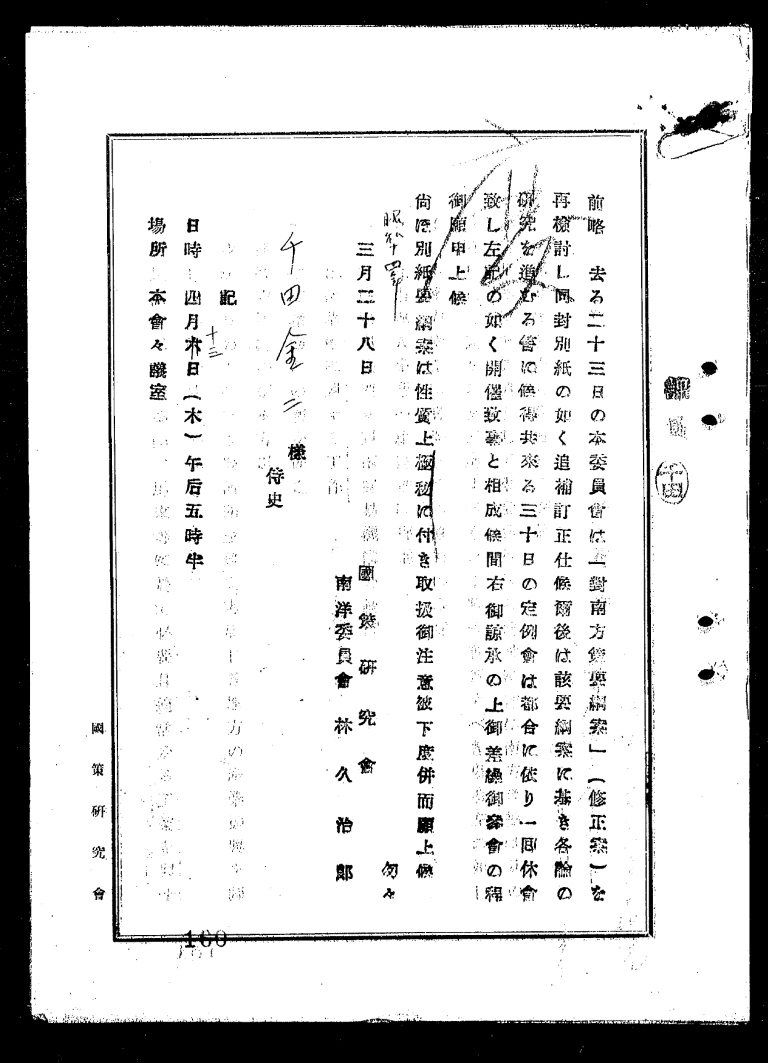 前略 去る二十三日の本委員會は「對南方策要綱案」(修正案)を
再檢討し同封別紙の如く追補訂正仕候爾後は該要綱案に基き各論の
研究を進むる筈に候得共來る三十日の定例會は都合に依り一囘休會
致し左記の如く開催致事と相成候間右御諒承の上御差繰御參會の程
御願申上候
尚ほ別紙要綱案は性質上極祕に付き取扱御注意被下度併而願上候
匆々
三月二十八日
國策研究會
南洋委員會 林久治郎
千田金二 様
侍史
記
日時 四月六日(木)午后五時半
十三
場所 本會々議室
國策研究會
千田
160